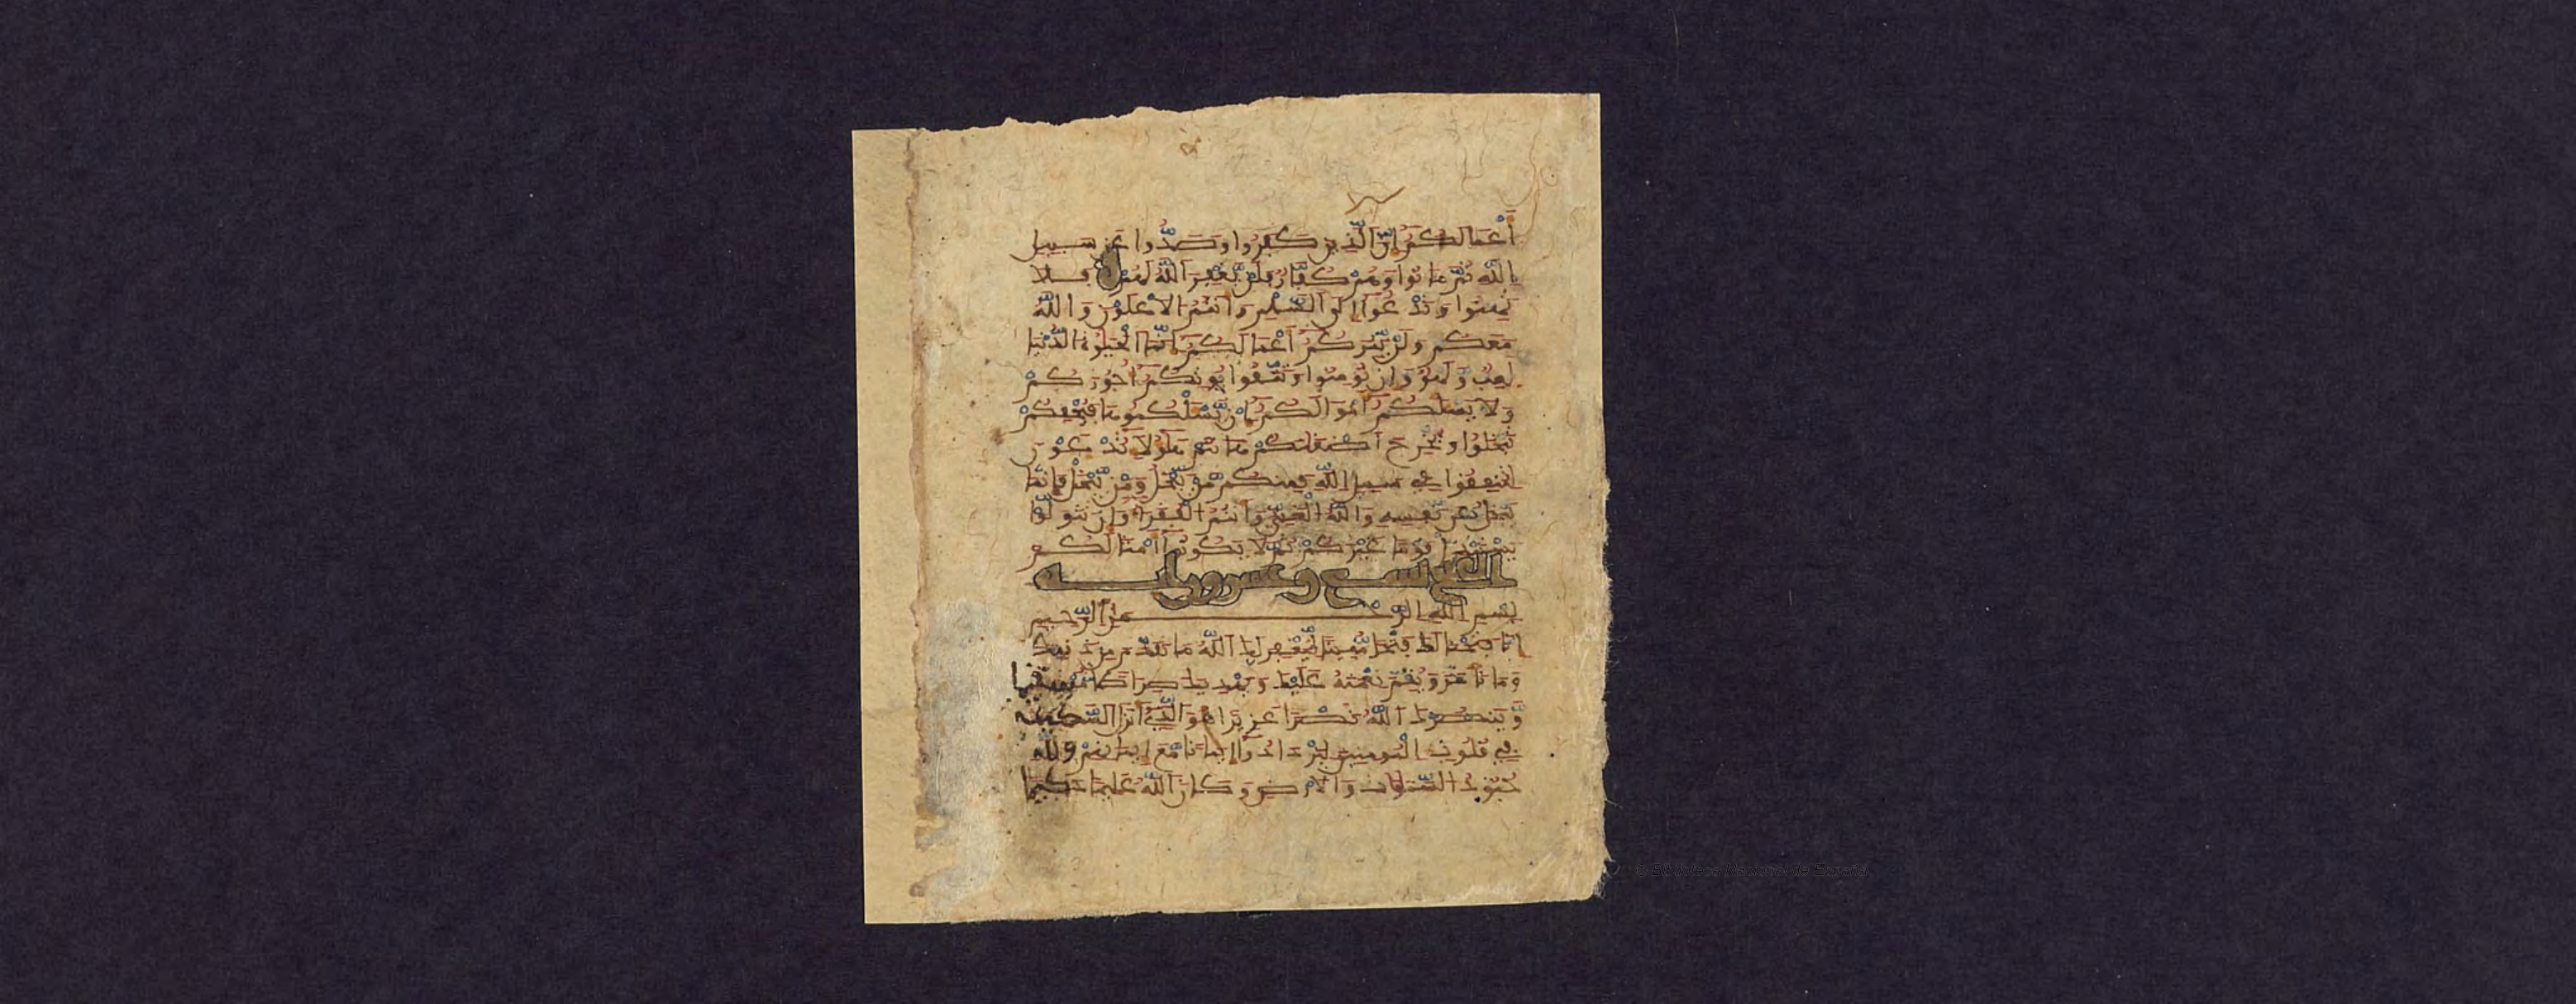 أَعْمَالَكُمْ إِنَّ الَّذِينَ كَفَرُوا وَصَدُّوا عَن سَبِيلِ
اللَّهِ ثُمَّ مَاتُوا وَهُمْ كُفَّارٌ فَلَنْ يَّغْفِرَ اللَّهُ لَهُمْ فَلَا
تَهِنُوا وَتَدْعُوا إِلَى السَّلْمِ وَأَنتُمُ الْأَعْلَوْنَ وَاللَّهُ
مَعَكُمْ وَلَنْ يَّتِرَكُمْ أَعْمَالَكُمْ إِنَّمَا الْحَيَوٰةُ الدُّنْيَا
لَعِبٌ وَلَهْوٌ وَإِن تُومِنُوا وَتَتَّقُوا يُوتِكُمْ أُجُورَكُمْ
وَلَا يَسْـَٔلْكُمْ أَمْوَالَكُمْ إِنْ يَّسْـَٔلْكُمُوهَا فَيُحْفِكُمْ
تَبْخَلُوا وَيُخْرِجْ أَضْغَانَكُمْ هَا أَنتُمْ هَٰؤُلَاءِ تُدْعَوْنَ
لِتُنفِقُوا فِي سَبِيلِ اللَّهِ فَمِنكُم مَّنْ يَّبْخَلُ وَمَنْ يَّبْخَلْ فَإِنَّمَا
يَبْخَلُ عَن نَّفْسِهِ وَاللَّهُ الْغَنِيُّ وَأَنتُمُ الْفُقَرَاءُ وَإِن تَتَوَلَّوْا
يَسْتَبْدِلْ قَوْمًا غَيْرَكُمْ ثُمَّ لَا يَكُونُوا أَمْثَالَكُم
الفتح تسع وعشرون اية
بِسْمِ اللَّهِ الرَّحْمَٰنِ الرَّحِيمِ
إِنَّا فَتَحْنَا لَكَ فَتْحًا مُّبِينًا لِّيَغْفِرَ لَكَ اللَّهُ مَا تَقَدَّمَ مِن ذَنبِكَ
وَمَا تَأَخَّرَ وَيُتِمَّ نِعْمَتَهُ عَلَيْكَ وَيَهْدِيَكَ صِرَاطًا مُّسْتَقِيمًا
وَّيَنصُرَكَ اللَّهُ نَصْرًا عَزِيزًا هُوَ الَّذِي أَنزَلَ السَّكِينَةَ
فِي قُلُوبِ الْمُومِنِينَ لِيَزْدَادُوا إِيمَانًا مَّعَ إِيمَانِهِمْ وَلِلَّهِ
جُنُودُ السَّمَٰوَاتِ وَالْأَرْضِ وَكَانَ اللَّهُ عَلِيمًا حَكِيمًا